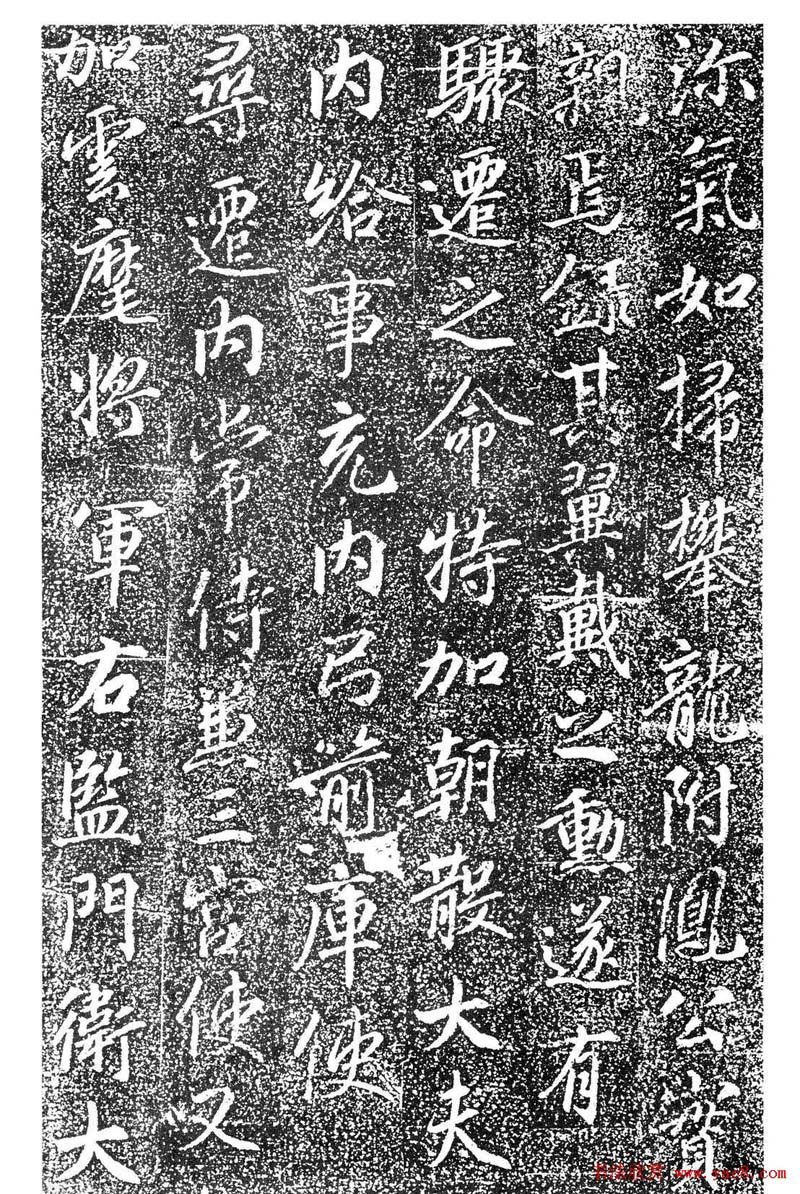 沴氣如掃攀龍附鳳公實
親焉録其翼戴之勳遂有
驟遷之命特加朝散大夫
内給事充内弓箭庫使
尋遷内常侍兼三宫使又
加雲麾將軍右監門衛大
书法欣赏 www.yac8.com